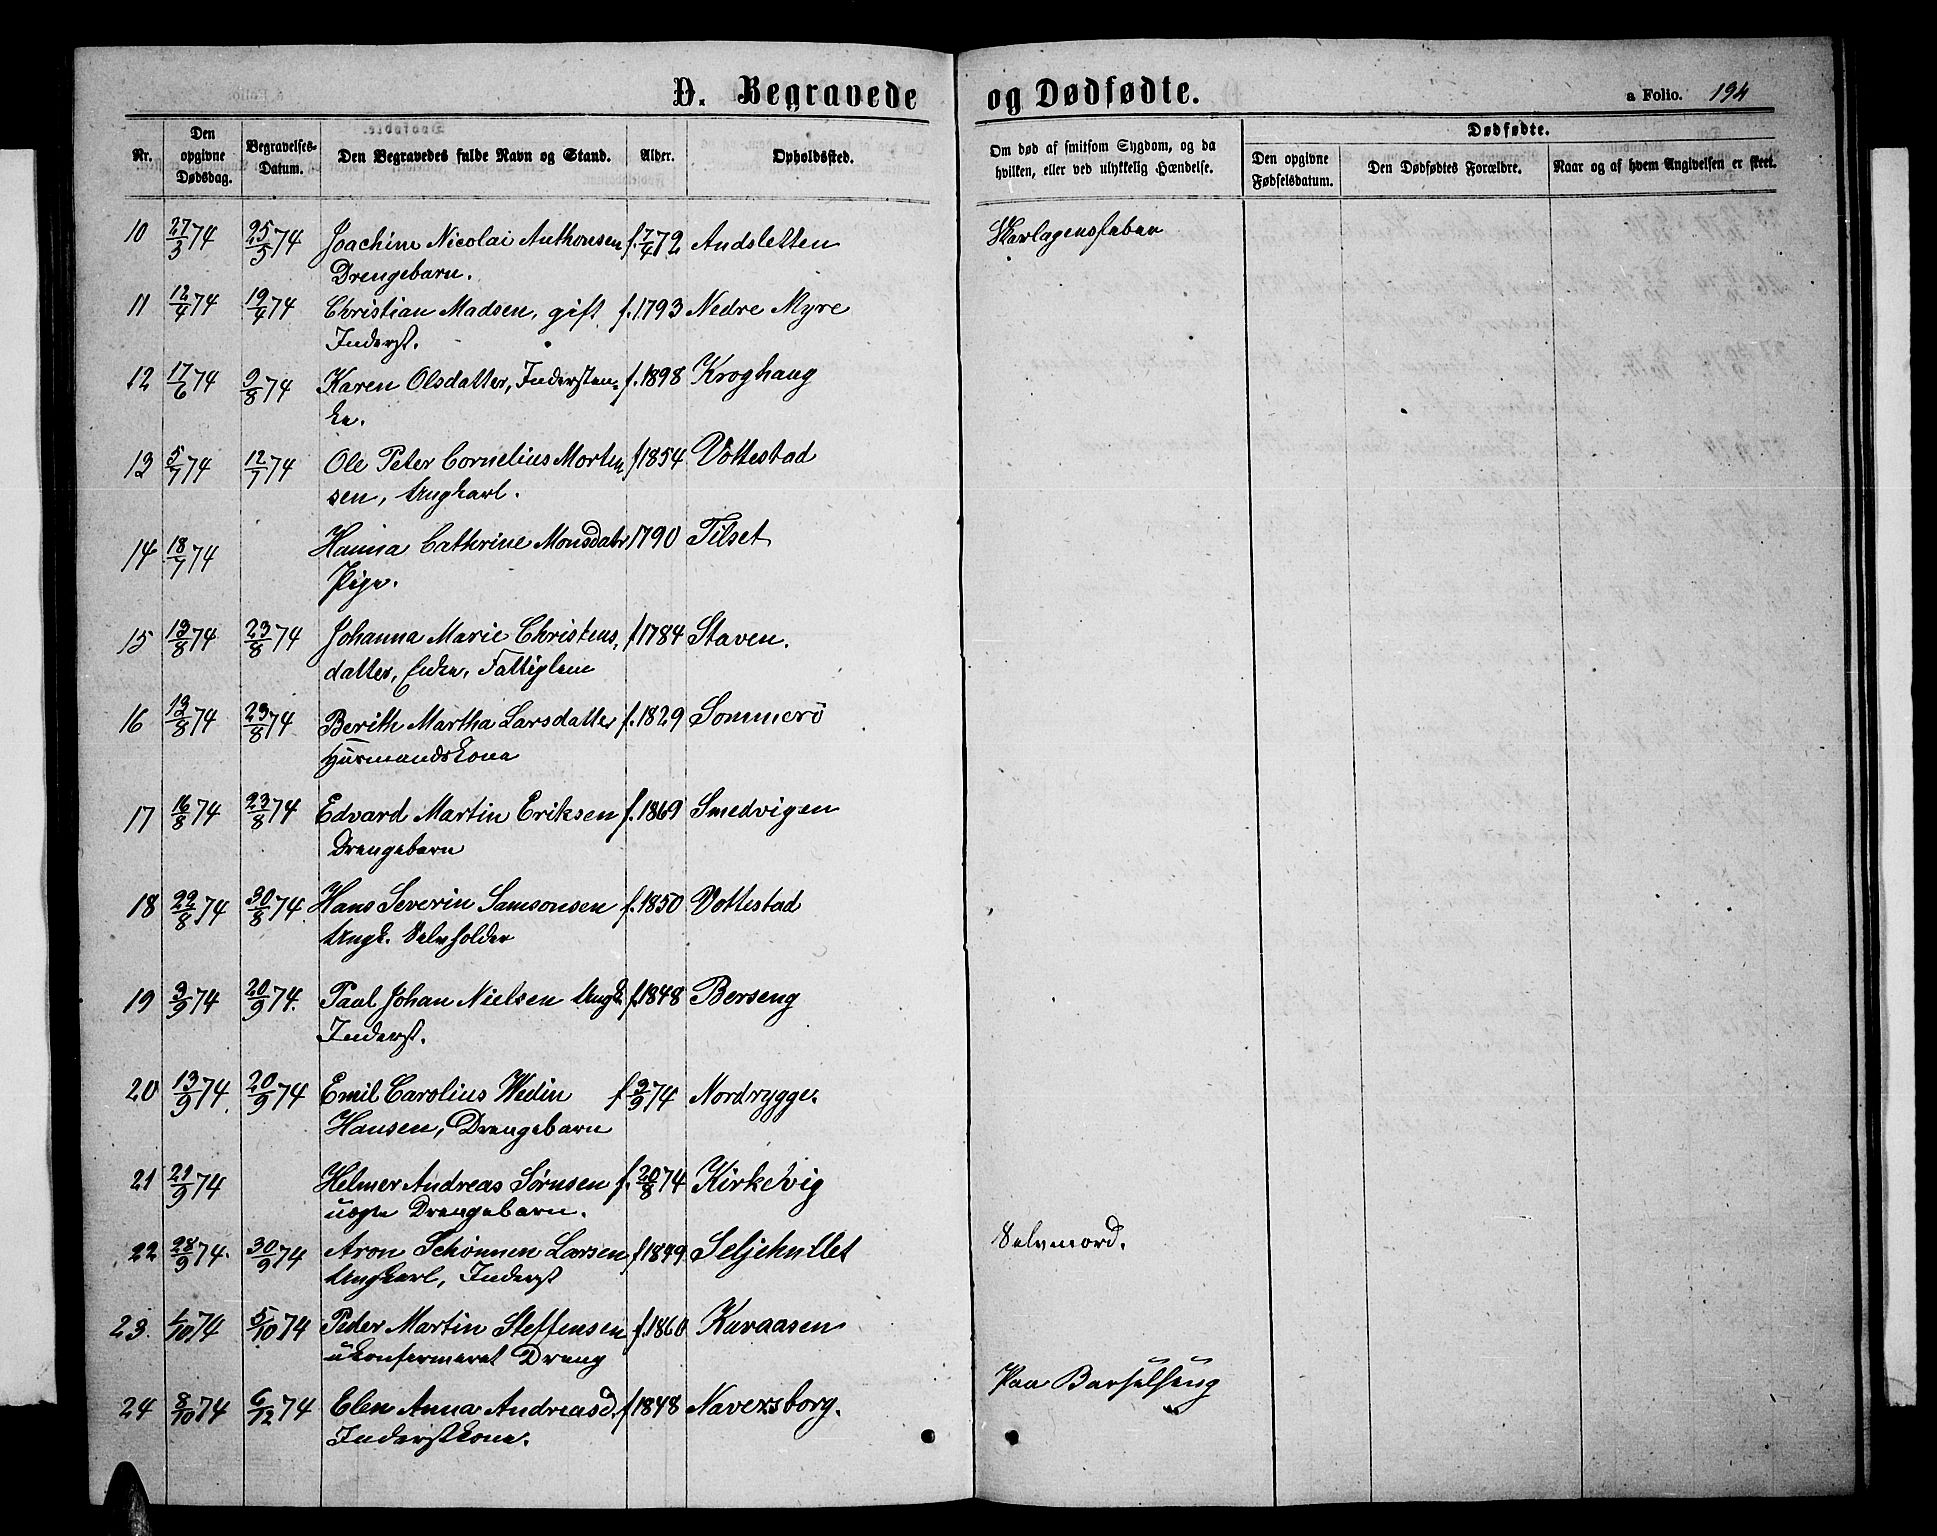 D. Begravede og Dødfødte.
a Folio. 194
Nr. Den opgivne Dødsdag. Begravelses-Datum. Den Begravedes fulde Navn og Stand. Alder. Opholdssted. Om død af smitsom Sygdom, og da hvilken, eller ved ulykkelig Hændelse. Dødfødte. Den opgivne Fødselsdatum. Den Dødfødtes Forældre. Naar og af hvem Angivelsen er skeet.
10 27/3 74 25/5 74 Joachim Nicolai Anthonsen f. 7/4 72 Andsletten Skarlagensfeber
Drengebarn.
11 12/4 74 19/4 74 Christian Madsen, gift f. 1793 Nedre Myre
Inderst.
12 17/6 74 9/8 74 Karen Olsdatter, Indersten= f. 1898 Kroghaug
ke.
13 5/7 74 12/7 74 Ole Peter Cornelius Morten f 1854 Vottestad
sen, Ungkarl.
14 18/7 74 Hanna Cathrine Monsdatr 1790 Tilset
Pige.
15 13/8 74 23/8 74 Johanna Marie Christens, f 1784 Staven.
datter, Enke, Fattiglem
16 13/8 74 23/8 74 Berith Martha Larsdatter f. 1829 Sommerö
Husmandskone
17 16/8 74 23/8 74 Edvard Martin Eriksen f. 1869 Smedvigen
Drengebarn
18 22/8 74 30/8 74. Hans Severin Samsonsen f. 1850 Vottestad
Ungk. Selvholder
19 3/9 74 20/9 74. Paul Johan Nielsen Ungk. f. 1848 Berseng
Inderst.
20 13/9 74. 20/9 74 Emil Carolius Wedin f 3/9 74 Nordrygge.
Hansen, Drengebarn
21 21/9 74 Helmer Andreas Sørnsen f. 20/8 74 Kirkevig
uægte Drengebarn.
22 28/9 74. 30/9 74 Aron Schönnen Larsen f 1849 Seljehullet Selvmord.
Ungkarl, Inderst
23. 1/10 74 5/10 74 Peder Martin Steffensen f. 1860 Kuraasen
ukonfermeret Dreng
24 8/10 74 6/12 74 Elen Anna Andreasd. f 1848 Naversborg. Paa Barselseng
Inderstkone.